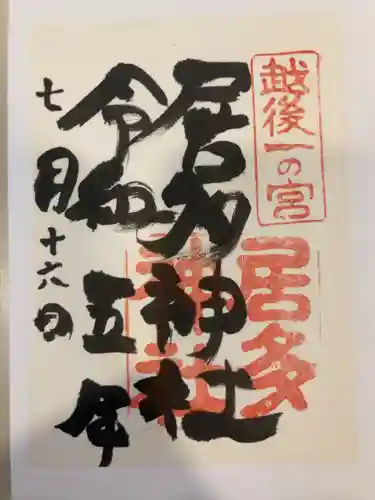 越後一の宮
居多神社
居多神社
令和五年
七月十六日